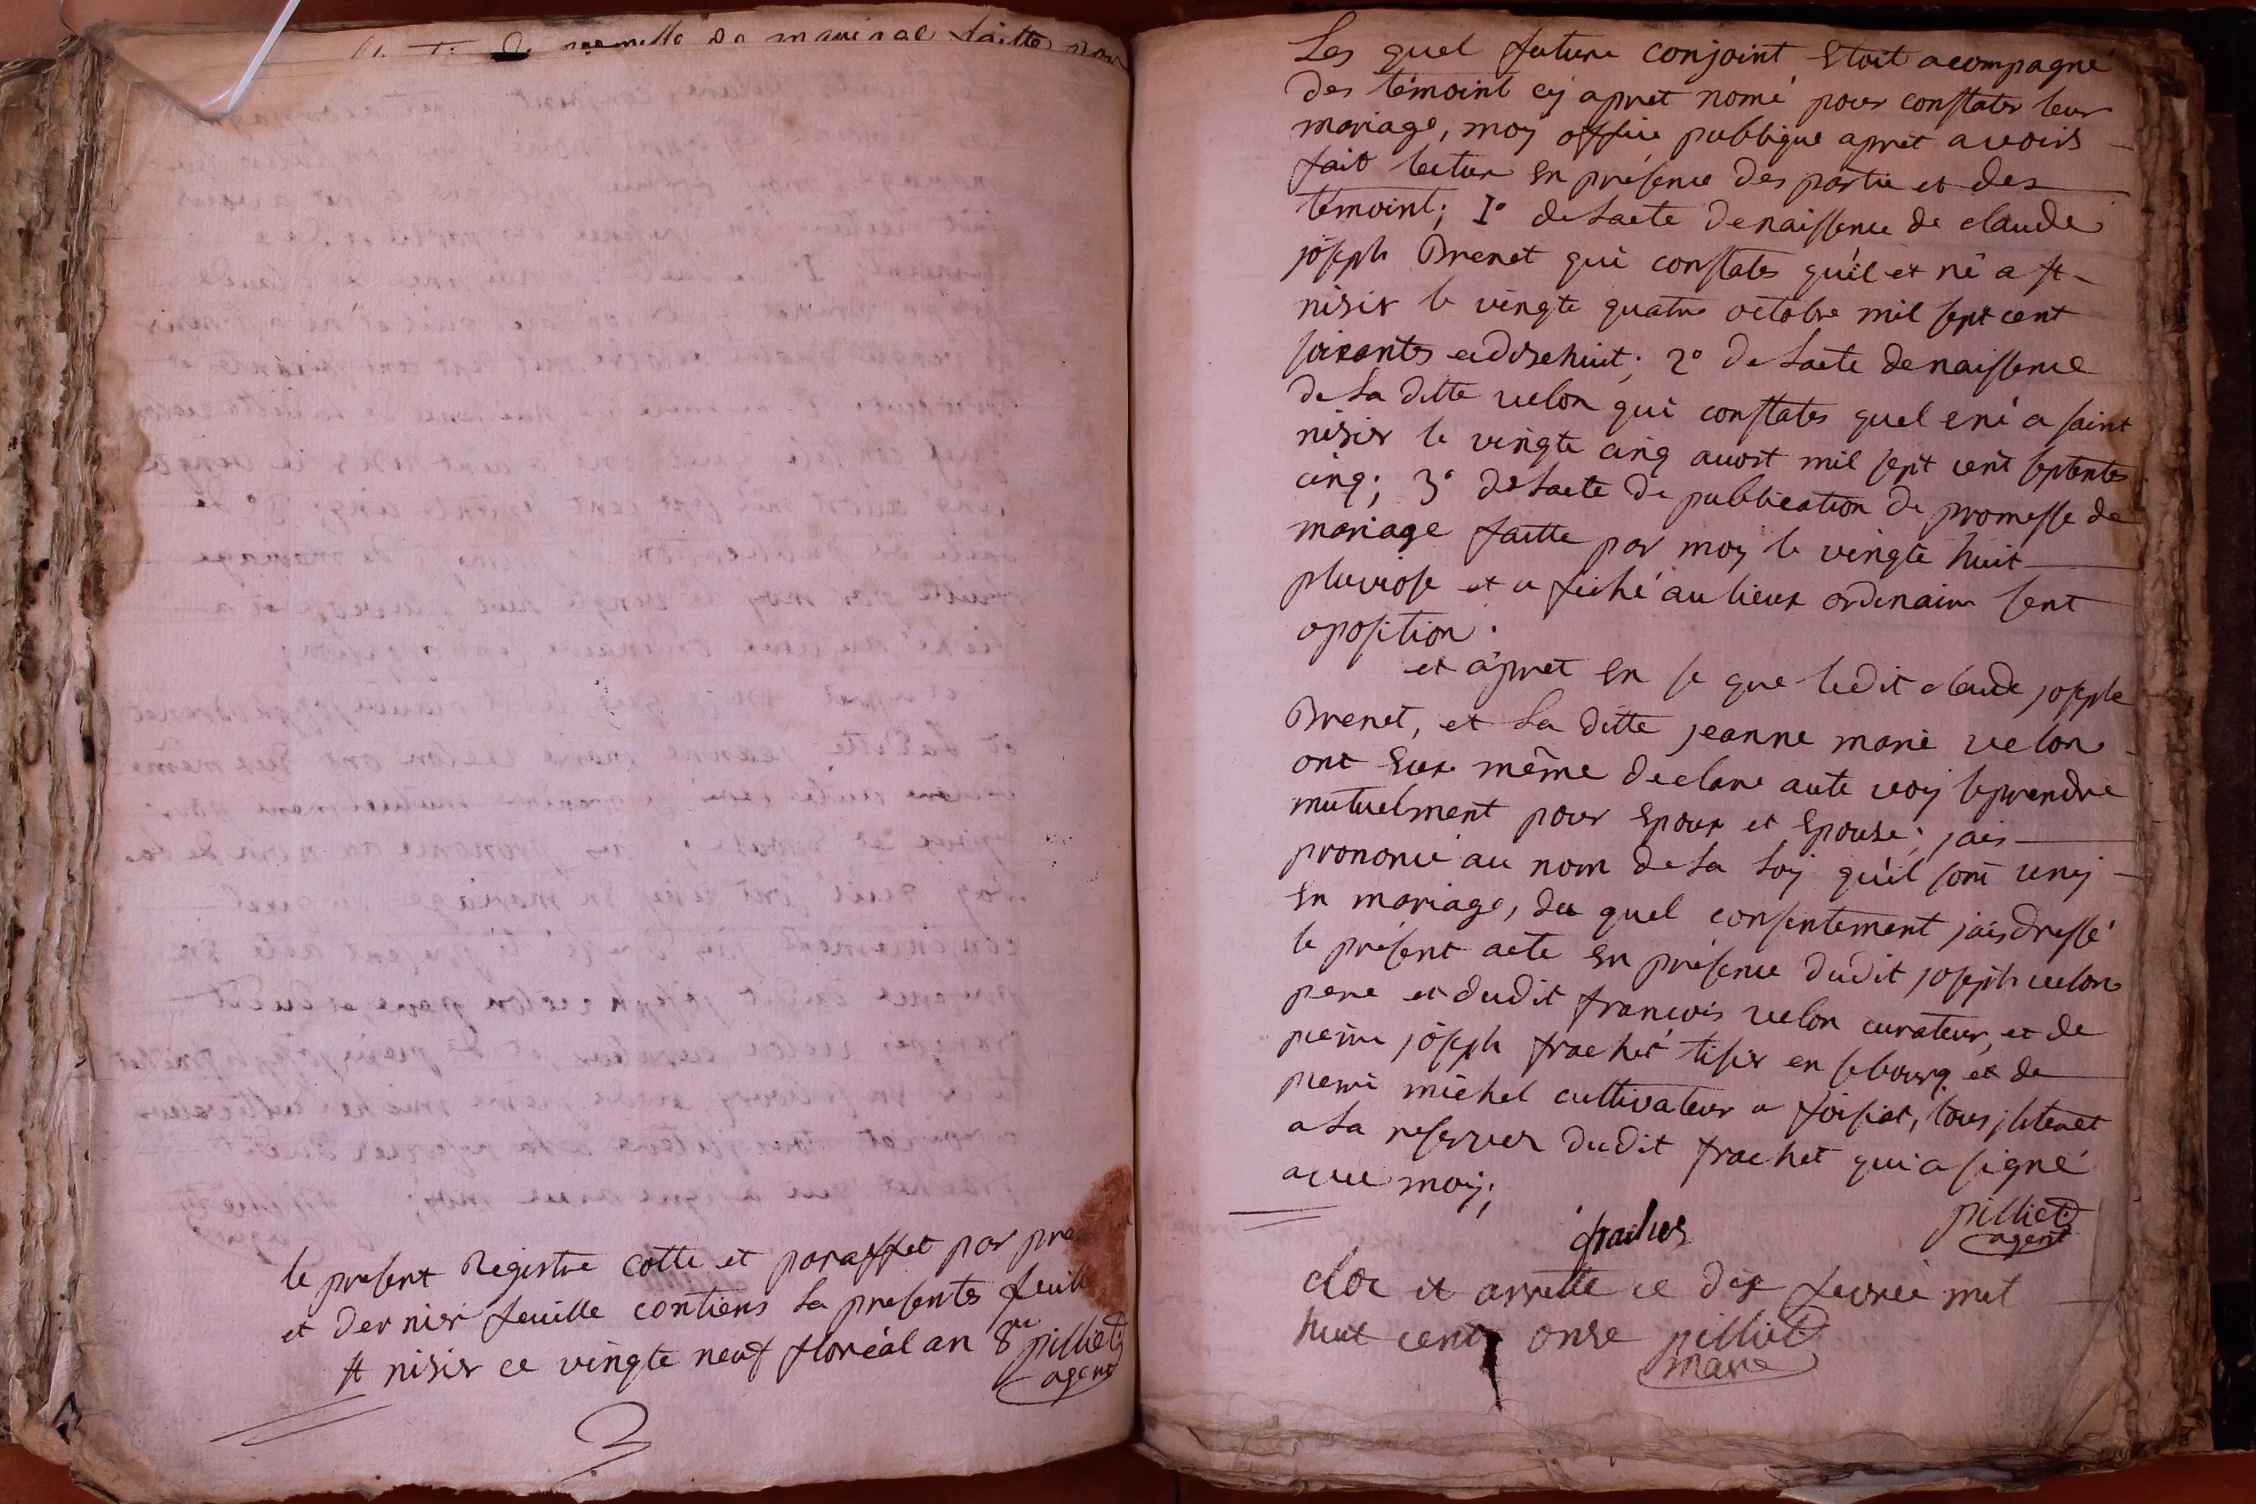 promesse de mariage faitte par
le present Registre cotte et paraffet par pre
et dernier feuille contiens la presentes feuille
st nisier ce vingte neuf floréal an 8me pilliet
agent
Les quel future conjoint Etoit acompagné
des témoint cy apret nomé pour constater leur
mariage, moy officie publique apret avoirs
fait lectur en présence des partie et des
témoint; 1° de lacte de naissence de claude
joseph Brenet qui constates quil et né a st
nisier le vingte quatre octobre mil sept cent
soixantes ed disehuit; 2° de lacte de naissence
de La ditte velon qui constates quel e né a saint
nisier le vingte cinq auost mil sept cent septentes
cinq; 3° de lacte de publication de promesse de
mariage faitte par moy le vingte huit
pluviose et a fiché au lieux ordinaire sent
oposition.
et apret en se que ledit claude joseph
Brenet, et La ditte jeanne marie velon
ont Eux même declare aute voij se prendre
mutuelment pour Epoux et Epouse; jais
prononcé au nom de la Loy quil sont unij
En mariage, du quel consentement jais dressé
le présent acte En présence dudit joseph velon
pere et dudit francois velon curateur, et de
pierre joseph frachet tisier en se bourg et de
pierre michel cultivateur a foissiat, tous jliteret
a La reserver dudit frachet qui a signé
avec moy;
frachet
pilliet
agent
clos et arrette ce dix fevrié mil
huit cent onse pilliet
maire